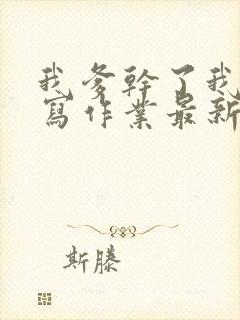 我爹幹了我
寫作業最新
斯滕